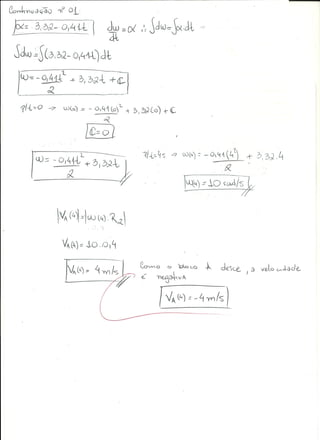 Continuação nº 01
α = 3,32 - 0,41t   dw/dt = α ∴ ∫dw = ∫αdt
∫dw = ∫(3.32 - 0,41t)dt
w = -0,41t²/2 + 3,32t + C
p/t=0 → w(0) = -0,41(0)²/2 + 3,32(0) + C
C=0
w = -0,41t²/2 + 3,32t   p/t=4s → w(4) = -0,41(4²)/2 + 3,32.4
w(4) = 10 rad/s
|VA(4)| = |w(4).R2|
VA(4) = 10.0,4
VA(4) = 4 m/s   Como o bloco A desce, a velocidade
é negativa
VA(4) = -4 m/s